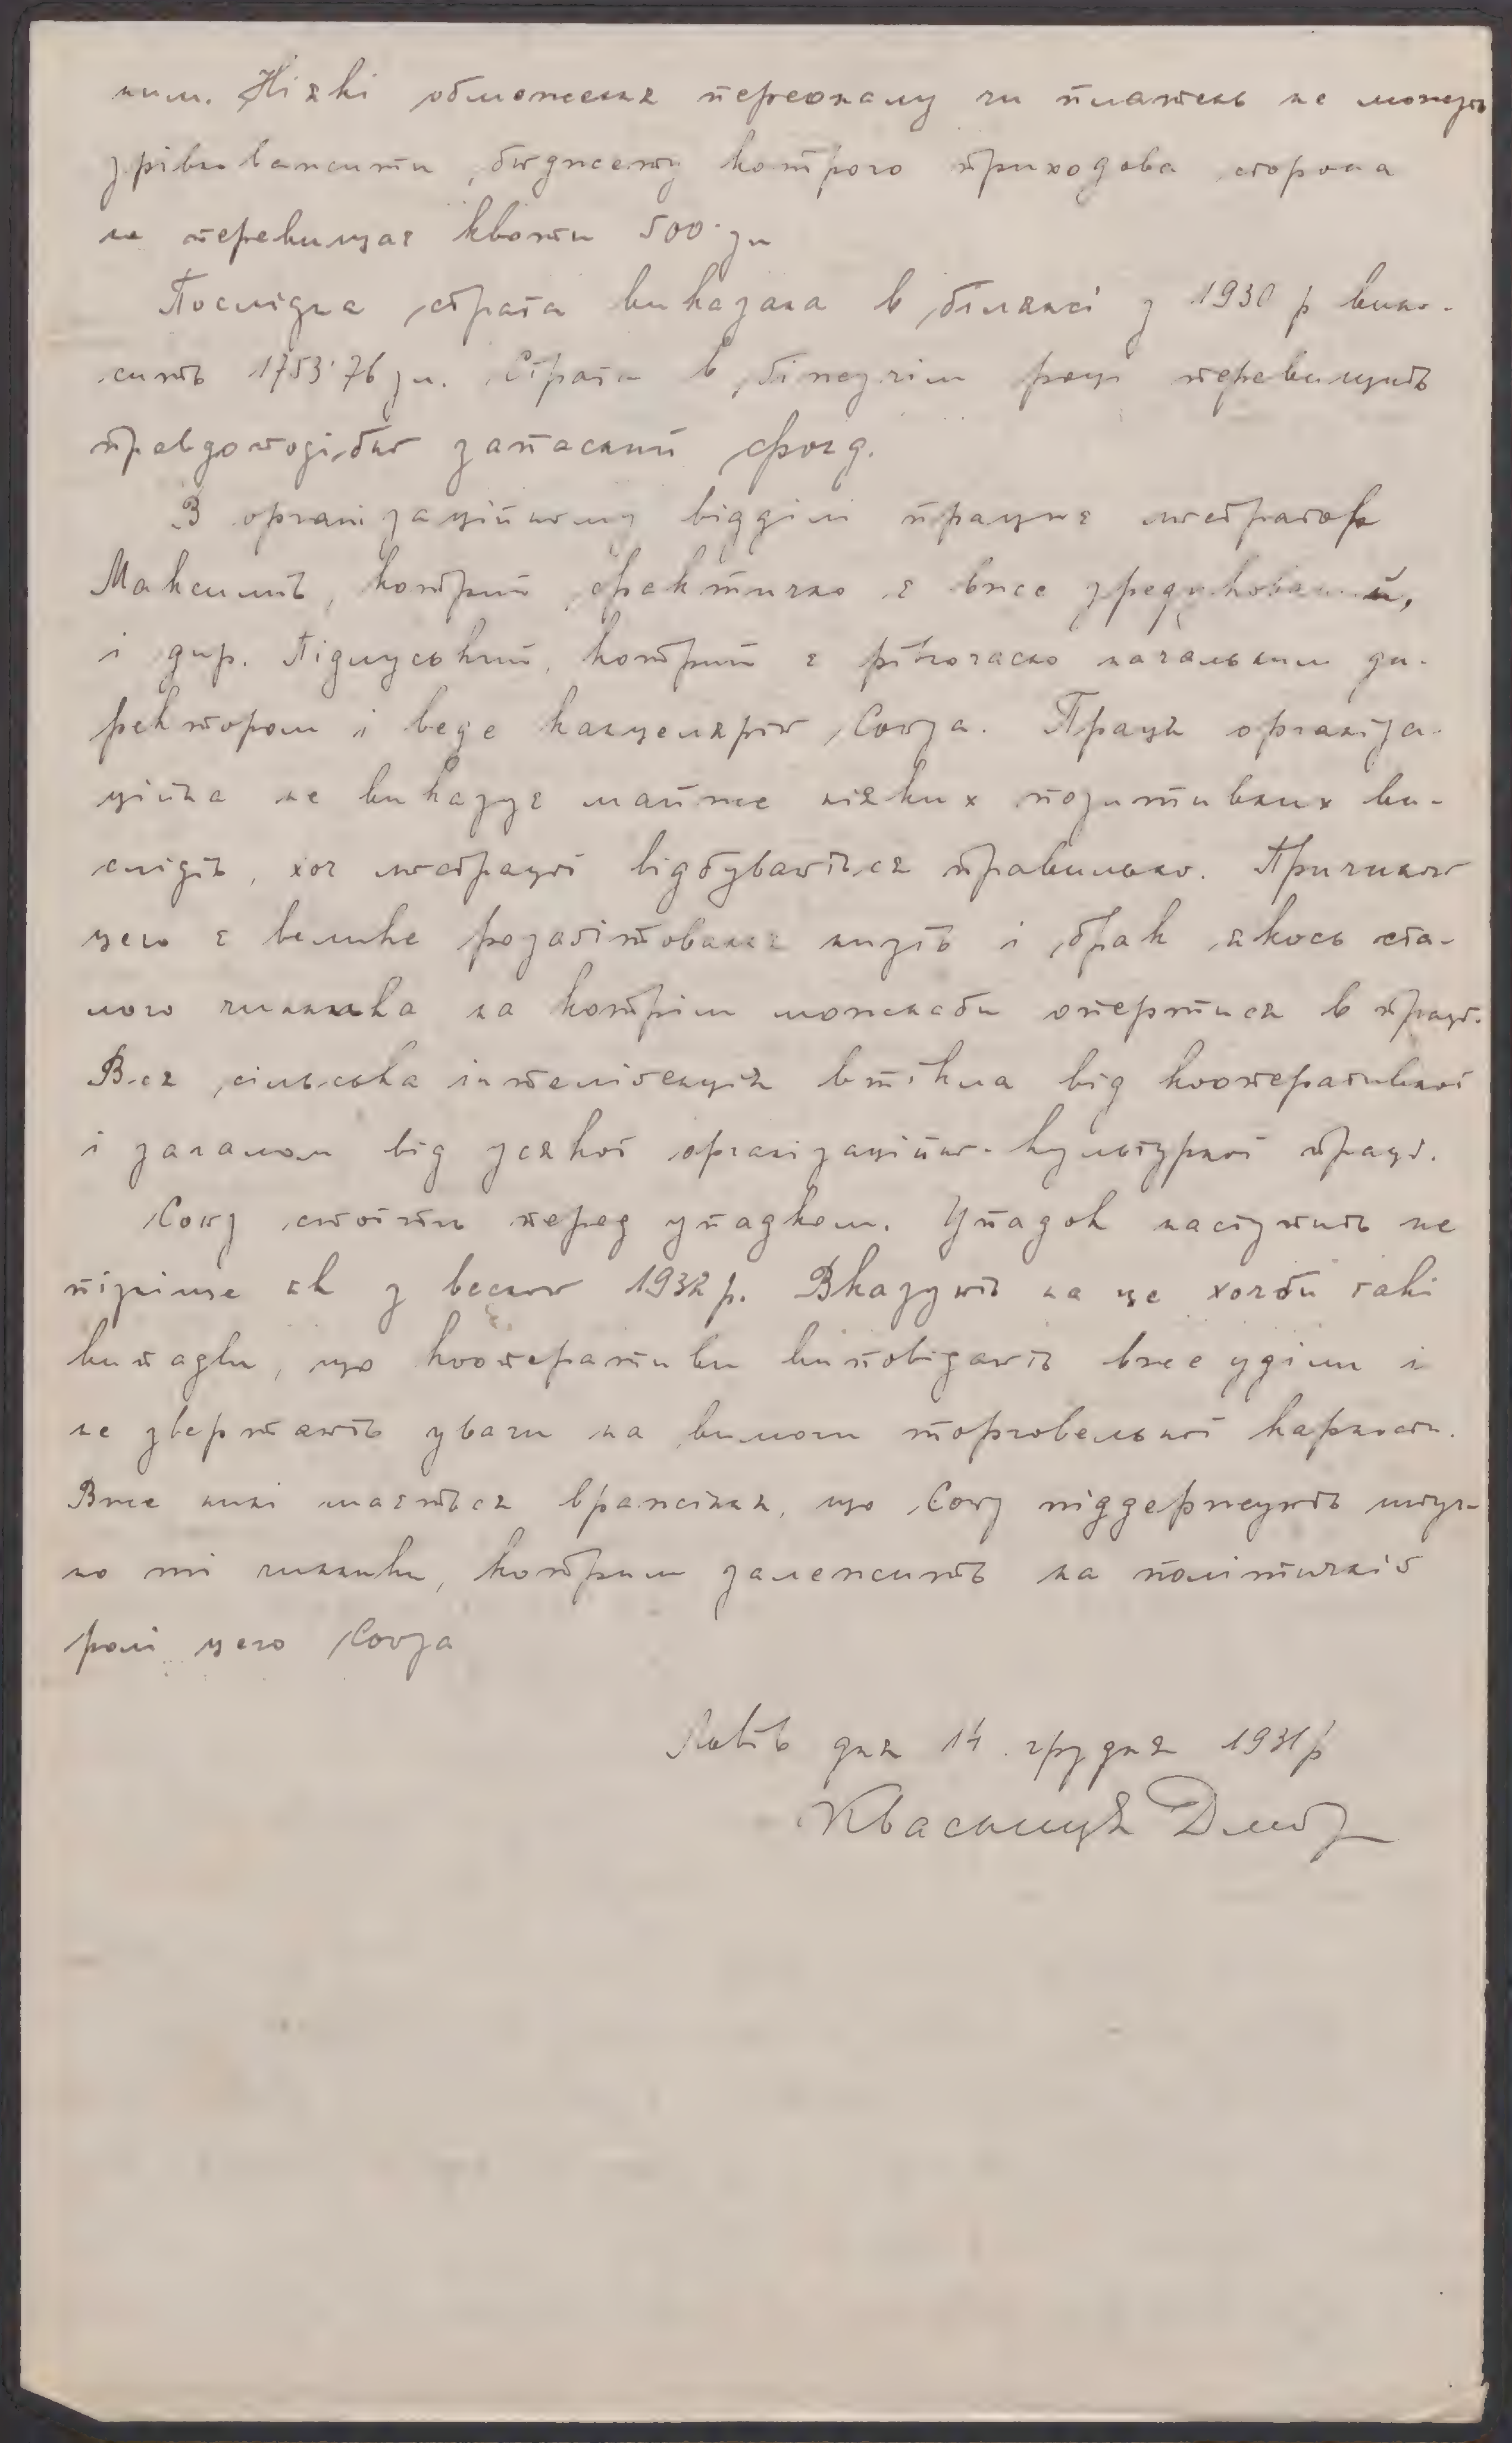 ним. Ніякі обмеження персоналу чи платень не можуть
зрівноважити бюджету котрого приходова сторона
не перевищає квоти 500 зл
Послідна страта виказана в білянсі з 1930 р вино-
сить 1753'76 зл. Страти в біжучім році перевищать
правдоподібно запасний фонд.
В організаційному відділі працює люстратор
Максимів, котрий фактично є вже зредукований,
і дир. Підлуський, котрий є рівночасно начальним ди-
ректором і веде канцелярію Союза. Праця організа-
ційна не виказує майже ніяких позитивних ви-
слідів, хоч люстрації відбуваються правильно. Причиною
цего є велике розаґітованє низів і брак якось ста-
лого чинника на котрім можнаби опертися в праці.
Вся сільська інтеліґенція втікла від кооперативної
і загалом від усякої організаційно-культурної праці.
Союз стоїть перед упадком. Упадок наступить не
пізніше як з весною 1932 р. Вказують на це хочби такі
випадки, що кооперативи виповідають вже уділи і
не звертають уваги на вимоги торговельної карности.
Вже нині мається вражіння, що Союз піддержують штуч-
но ті чинники, котрим залежить на політичній
ролі цего Союза
Львів дня 14 грудня 1931 р
Квасниця Дмитро